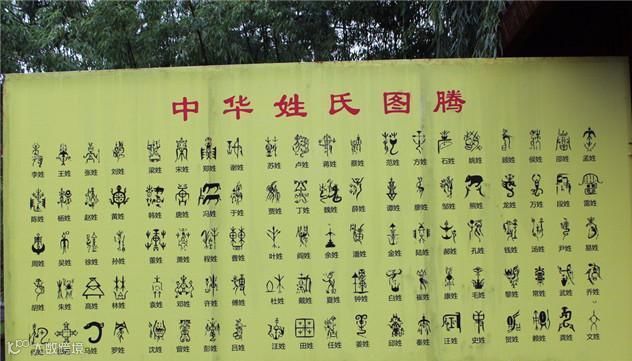 中华姓氏图腾
李姓 王姓 张姓 刘姓 梁姓 宋姓 郑姓 谢姓 苏姓 卢姓 蒋姓 蔡姓 范姓 方姓 石姓 姚姓 顾姓 侯姓 邵姓 孟姓
陈姓 杨姓 赵姓 黄姓 韩姓 唐姓 冯姓 于姓 贾姓 丁姓 魏姓 薛姓 谭姓 廖姓 邹姓 熊姓 龙姓 万姓 段姓 雷姓
周姓 吴姓 徐姓 孙姓 董姓 萧姓 程姓 曹姓 叶姓 阎姓 余姓 潘姓 金姓 陆姓 郝姓 孔姓 钱姓 汤姓 尹姓 易姓
胡姓 朱姓 高姓 林姓 袁姓 邓姓 许姓 傅姓 杜姓 戴姓 夏姓 钟姓 白姓 崔姓 康姓 毛姓 黎姓 常姓 武姓 乔姓
马姓 罗姓 沈姓 曾姓 彭姓 吕姓 汪姓 田姓 任姓 姜姓 邱姓 秦姓 史姓 贺姓 赖姓 龚姓 文姓
大数跨境